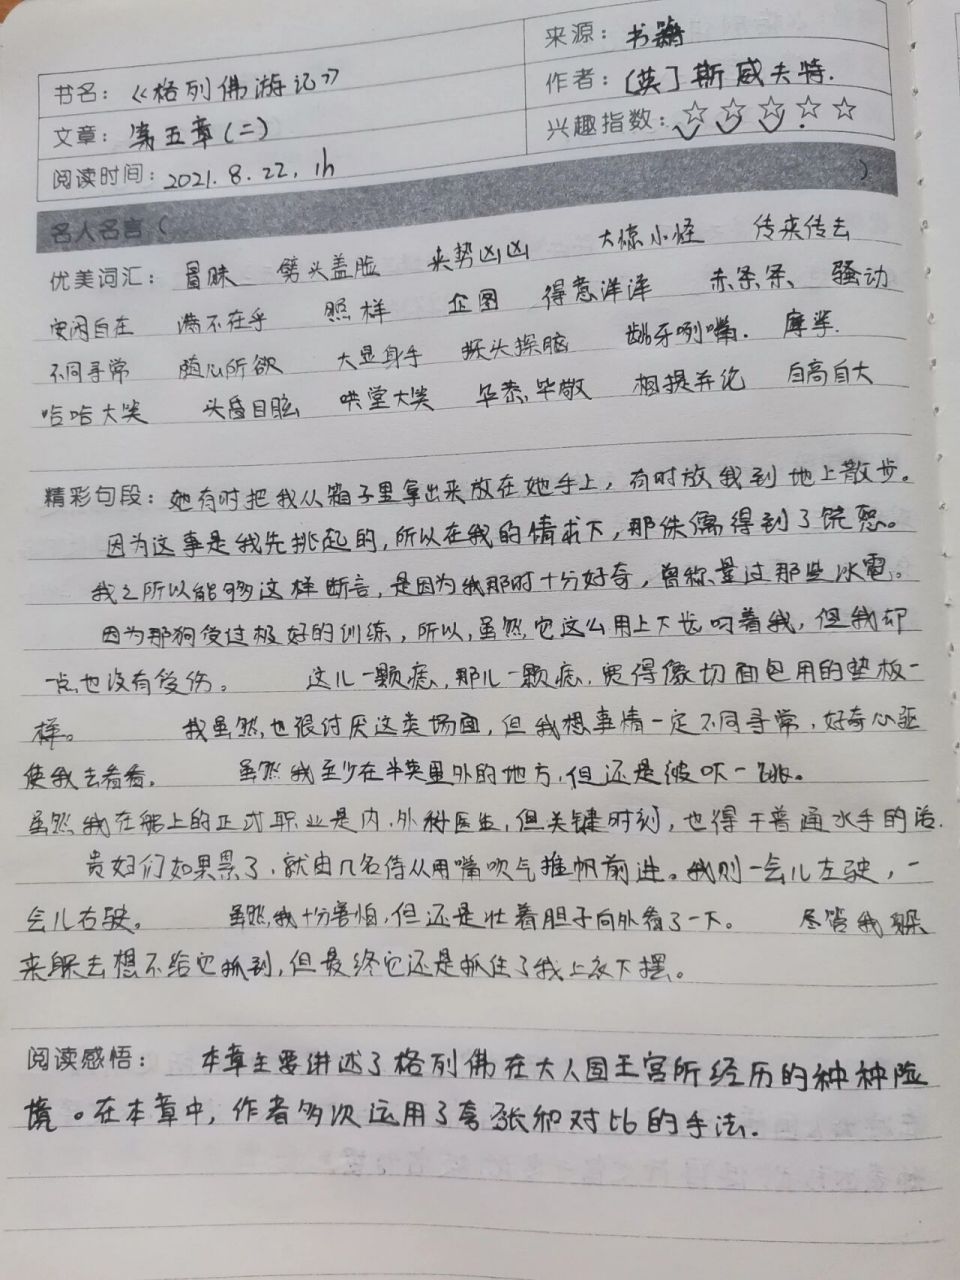 书名：《格列佛游记》
来源：书籍
文章：第五章(二)
作者：[英]斯威夫特.
阅读时间：2021.8.22，1h
兴趣指数：☆☆☆☆☆
名人名言（ ）
优美词汇：冒昧 劈头盖脸 来势凶凶 大惊小怪 传来传去
安闲自在 满不在乎 照样 企图 得意洋洋 赤条条 骚动
不同寻常 随心所欲 大显身手 探头探脑 龇牙咧嘴. 摩挲.
哈哈大笑 头昏目眩 哄堂大笑 毕恭毕敬 相提并论 自高自大
精彩句段：她有时把我从箱子里拿出来放在她手上，有时放我到地上散步。
因为这事是我先挑起的，所以在我的请求下，那侏儒得到了饶恕。
我之所以能够这样断言，是因为我那时十分好奇，曾称量过那些冰雹。
因为那狗受过极好的训练，所以，虽然它这么用上下齿叼着我，但我却
一点也没有受伤。 这儿一颗痣，那儿一颗痣，宽得像切面包用的垫板一
样。 我虽然也很讨厌这类场面，但我想事情一定不同寻常，好奇心驱
使我去看看。 虽然我至少在半英里外的地方，但还是被吓一跳。
虽然我在船上的正式职业是内、外科医生，但关键时刻，也得干普通水手的活.
贵妇们如果累了，就由几名侍从用嘴吹气推帆前进。我则一会儿左驶，一
会儿右驶。 虽然我十分害怕，但还是壮着胆子向外看了一下。 尽管我躲
来躲去想不给它抓到，但最终它还是抓住了我上衣下摆。
阅读感悟： 本章主要讲述了格列佛在大人国王宫所经历的种种险
境。在本章中，作者多次运用了夸张和对比的手法.